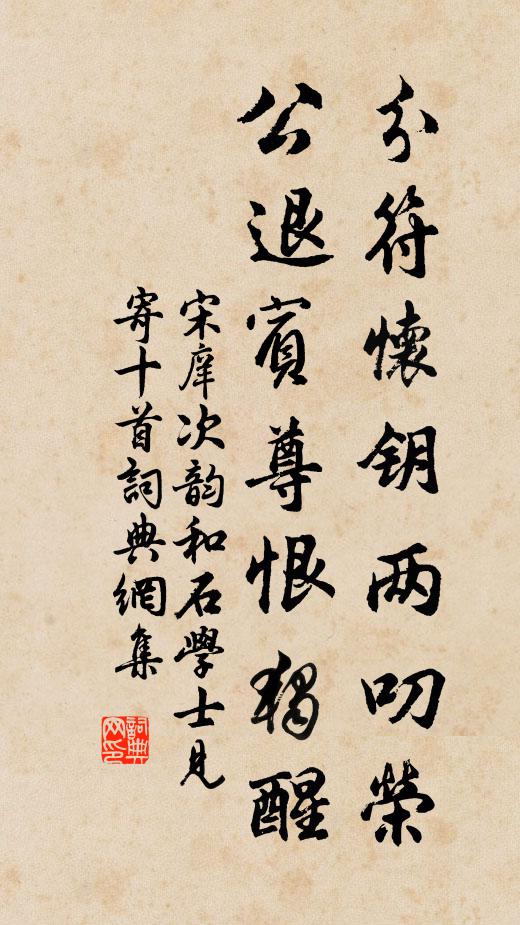 分符懷钥两叨榮
公退賓尊恨獨醒
宋庠次韵和石學士見
寄十首詞典網集
詞典网印